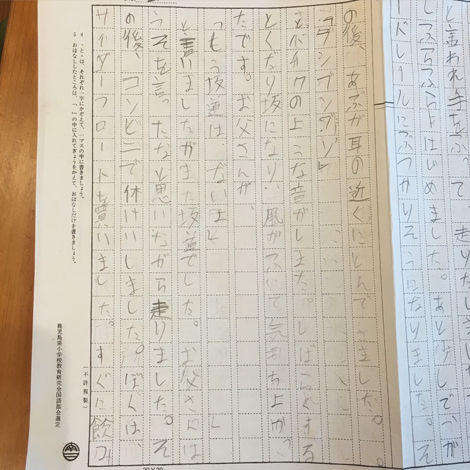 と言われ
はじめました。あと少しでガ
ードレールにぶつかりそうになりました。そ
の後、あぶが耳の近くにとんできました。
「ブンブンブン」
とバイクのような音がしました。しばらくする
とくだり坂になり、風がふいて気持ちよか
たです。お父さんが、
「もう坂道は、ないよ」
と言いましたがまた坂道でした。お父さんは
うそを言ったなと思いながら走りました。そ
の後、コンビニで休けいしました。ぼくは、
サイダーフロートを買いました。すぐに飲み
(不許複製)
4 、と。は、それぞれ一字にかぞえて、マスの中に書きましょう。
5 おはなししたところは、「 」の中に入れてぎょうをかえて、おはなしだけを書きましょう。
鹿児島県小学校教育研究会国語部会選定
20×20